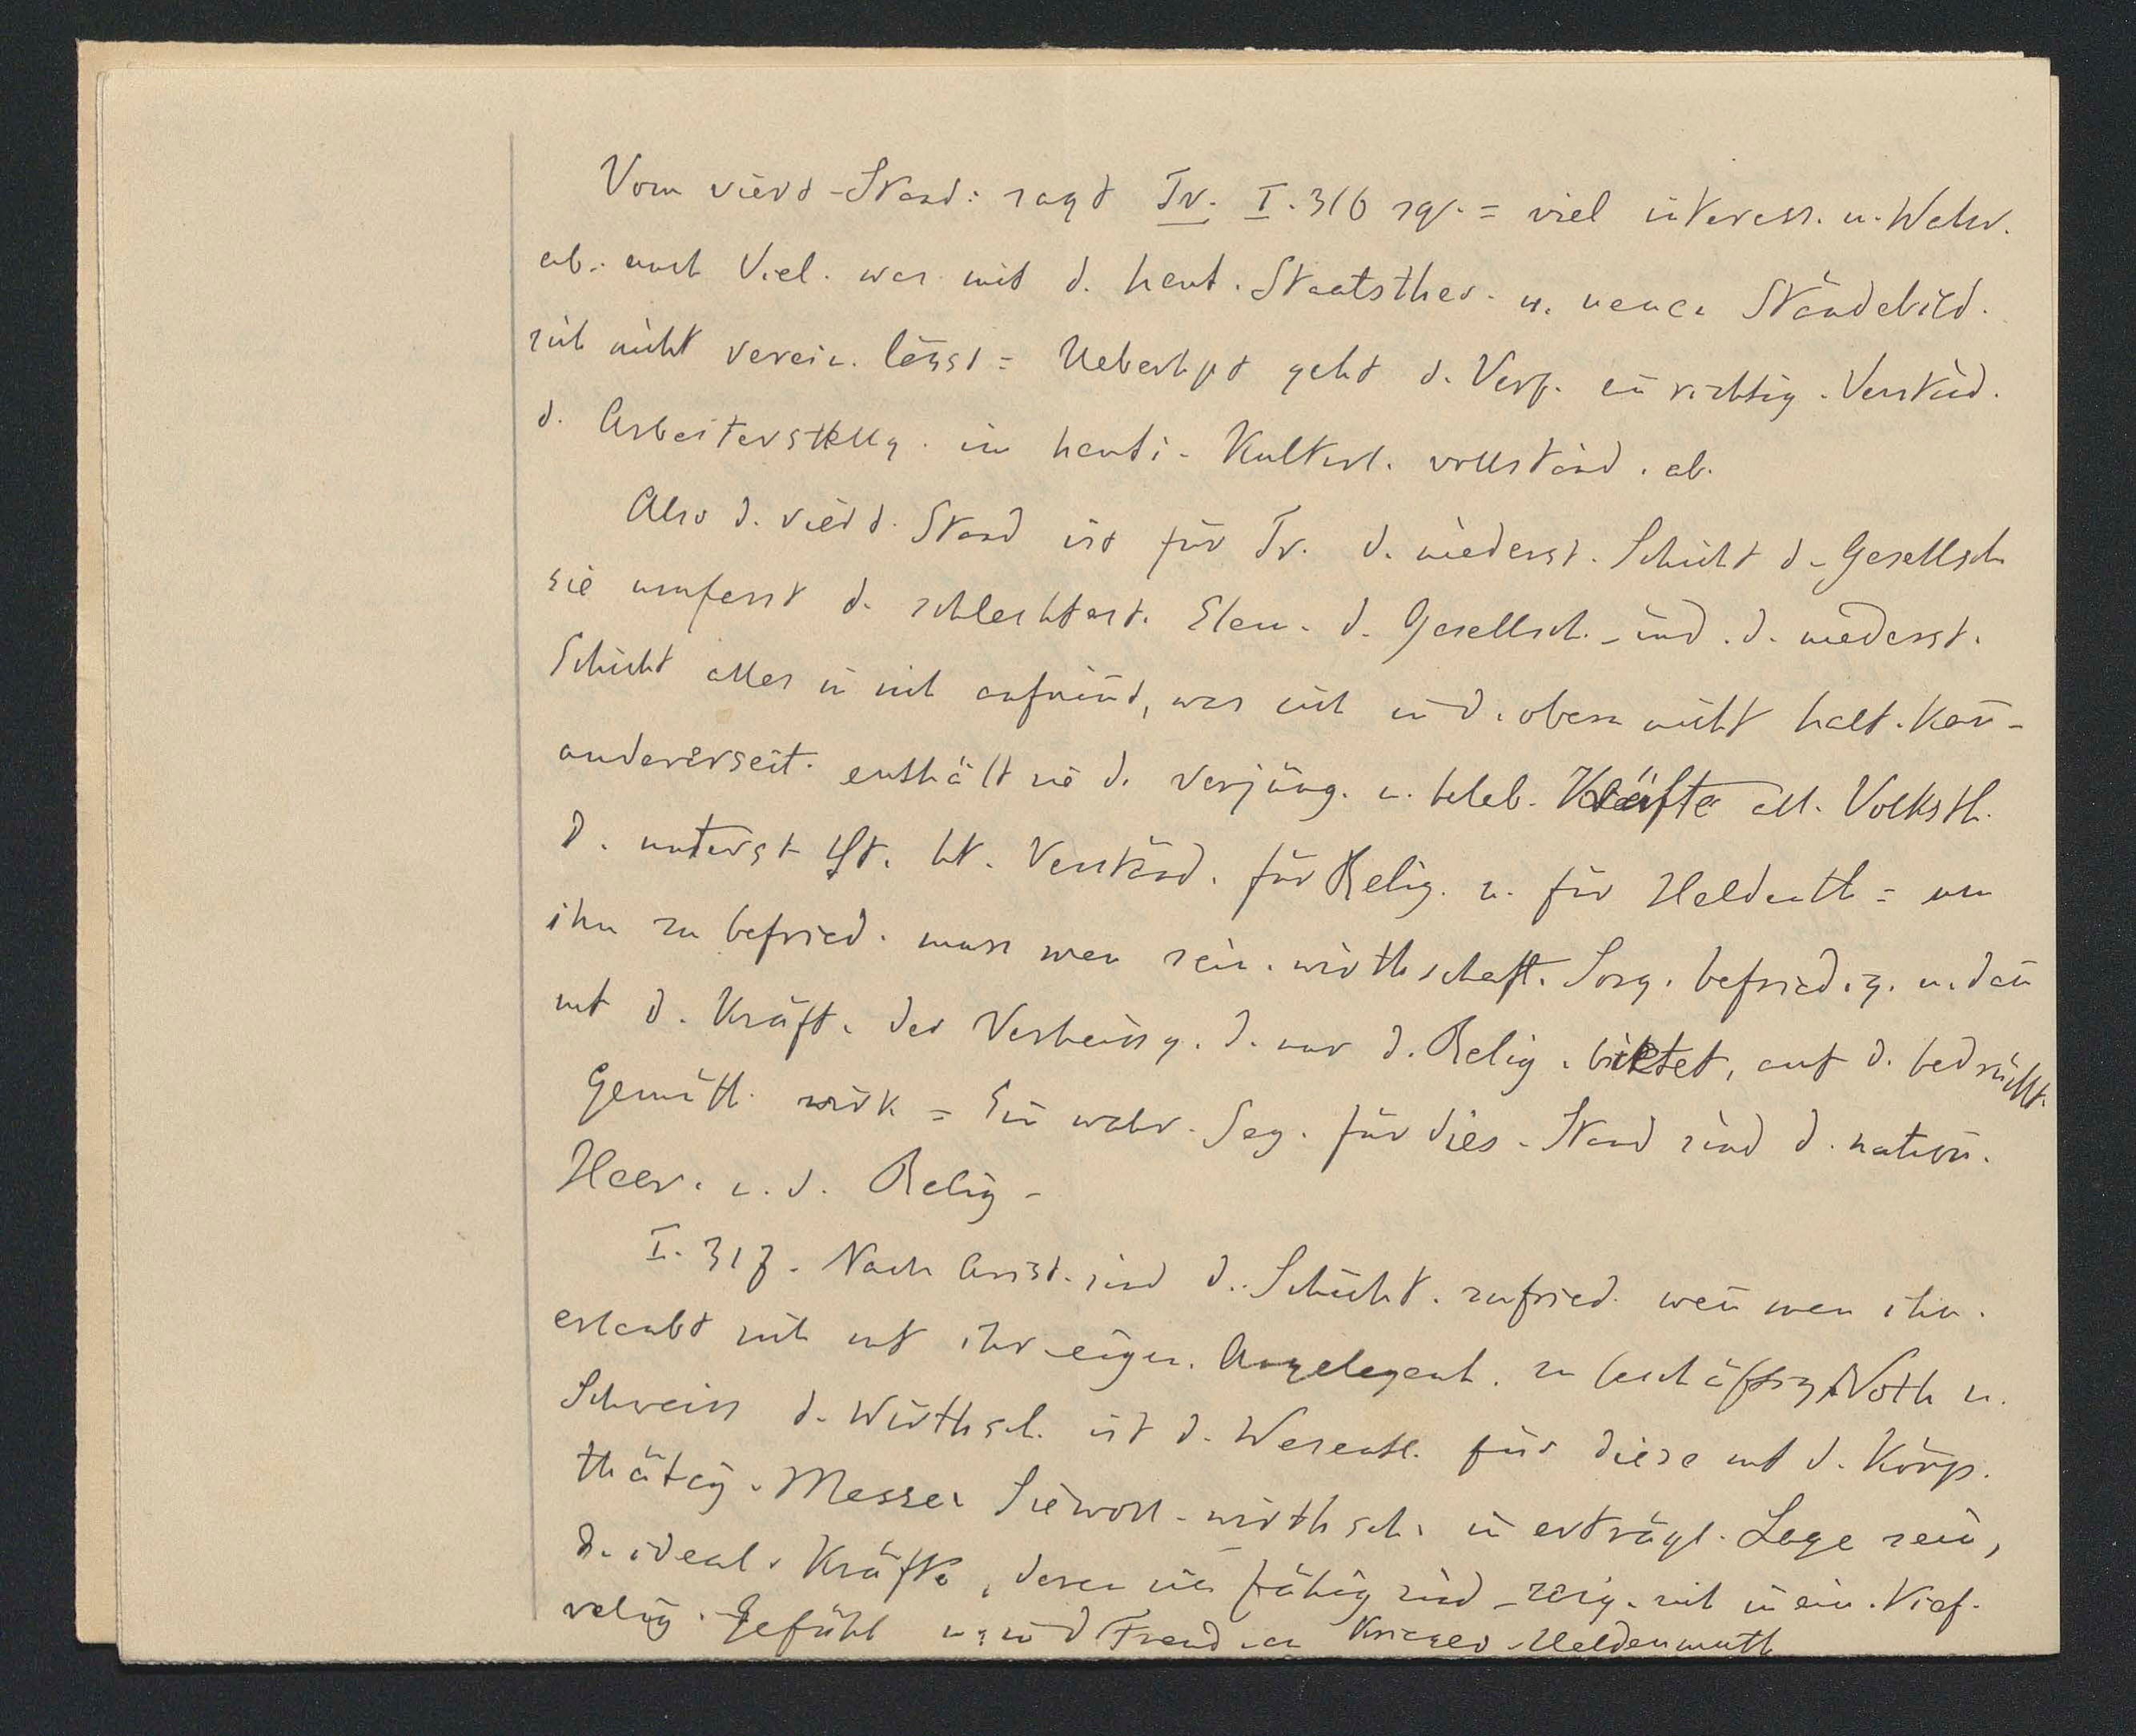 Vom vierd-Stand: sagt Tr. I. 316 sq. = viel interess. u. Wahr.
ab. auch Viel. was mit d. heut. Staatsther. u. neuer Ständebild.
sich nicht verein. lässt = Ueberhpt geht d. Verf. ein richtig. Verständ.
d. Arbeiterstellg. im heuti. Kulturl. vollständ. ab.
Also d. vierd. Stand ist für Tr. d. niederst. Schicht d. Gesellsch
sie umfasst d. schlechtest. Elem. d. Gesellsch. - ind. d. niederst.
Schicht alles in sich aufnimt, was sich in d. obern nicht halt. kan̄ -
andererseit. enthält sie d. verjüng. u. beleb. Kräfte all. Volksth.
D. unterst St. ht. Verständ. für Relig. u. für Heldenth = um
ihn zu befried. muss man sein. wirthschaft. Sorg. befriedig. u. dan̄
mt d. Kräft. der Verheissg. d. nur d. Relig. bietet, auf d. bedrückt.
Gemüth. wirk = Ein wahr. Seg. für dies. Stand sind d. nation.
Heer. u. d. Relig -
I. 317. Nach Arist. sind d. Schicht. zufried. wen̄ man ihn.
erlaubt sich mt ihr eigen. Angelegenh. zu beschäftig. Noth u.
Schweiss d. Wirthsch. ist d. Wesentl. für diese mt d. Körp.
thätig. Massen Sie woll. wirthsch. in erträgl. Lage sein,
d. ideal. Kräfte, deren sie fähig sind - zeig. sich in ein. tief.
relig. Gefühl u. in d Freud. an Krieger. Heldenmuth